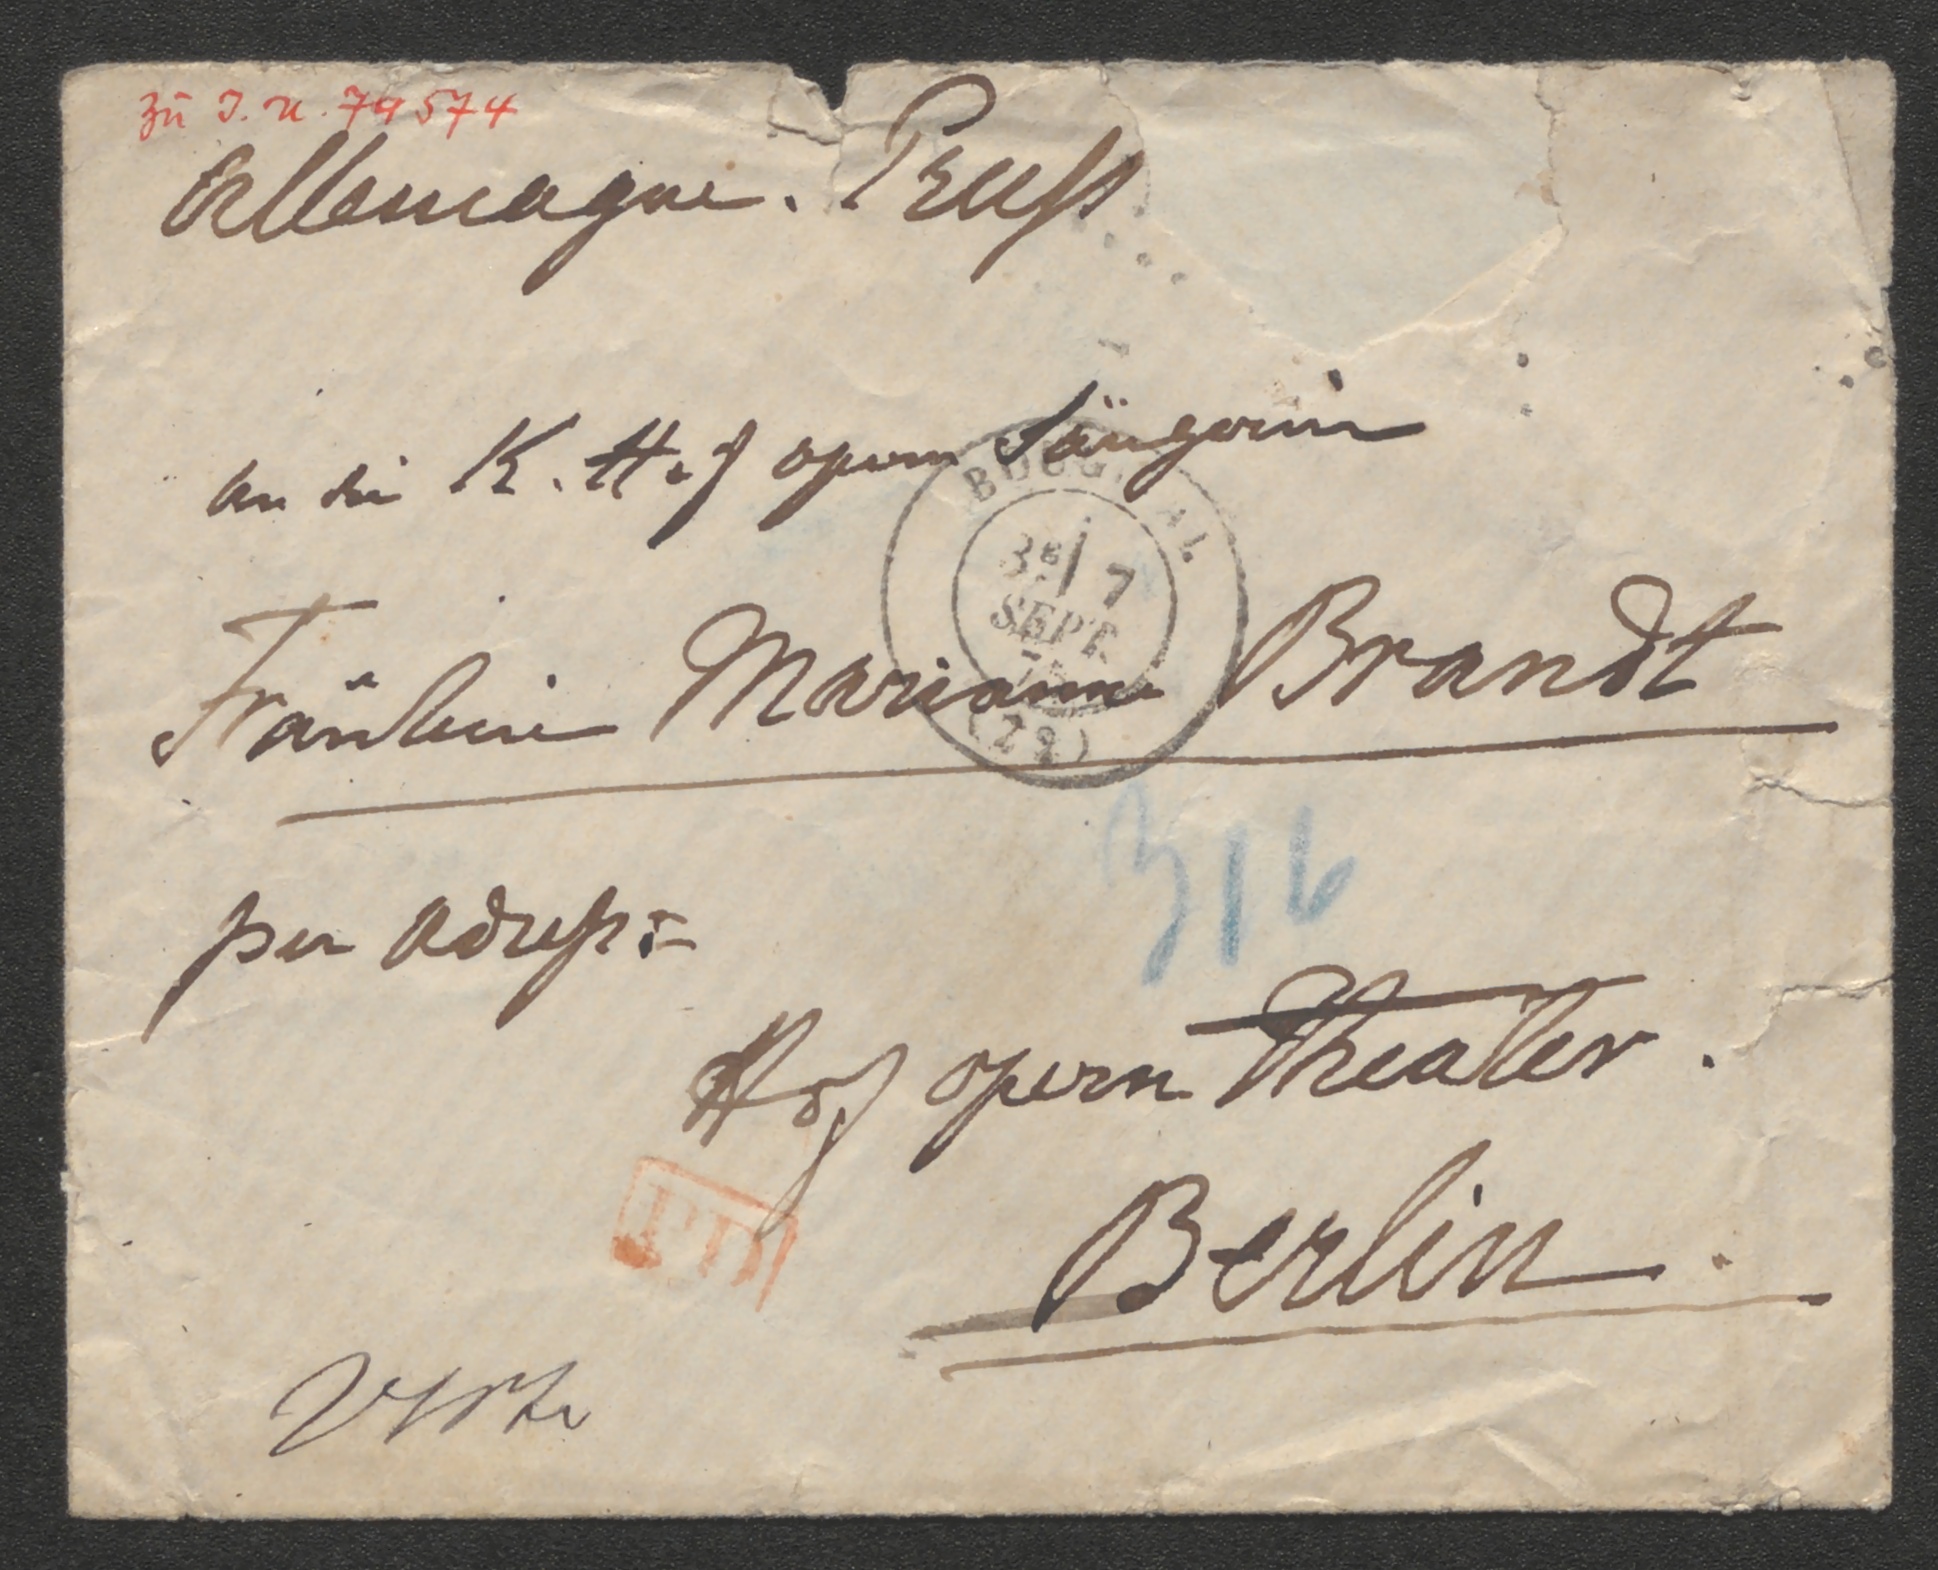 zu I. N. 74574
Allemagne. Preuss
An die K. Hof opern Sängerin
BOUGIVAL
3E/ 7
SEPT.
Fräulein Marianne Brandt
(72)
316
per Adress:
Hof opern Theater.
PD
Berlin.